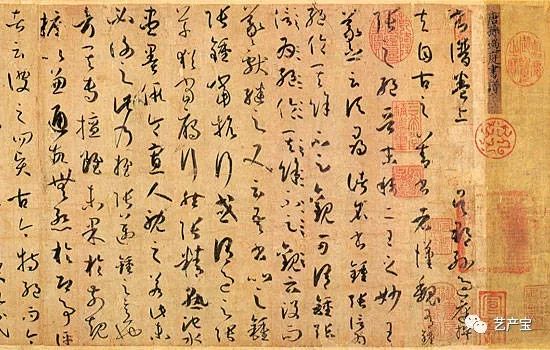 唐孫過庭書譜
書譜卷上 吳郡孫過庭撰
夫自古之善書者漢魏有鍾
張之絕晉末稱二王之妙王
羲之云頃尋諸名書鍾張信為
絕倫其餘不足觀可謂鍾張
信為絕倫其餘不足觀云沒而
羲獻繼之又云吾書比之鍾
張鍾當抗行或謂過之張
草猶當鴈行然張精熟池水
盡墨假令寡人耽之若此未
必謝之此乃推張邁鍾之意也
考其專擅雖未果於前規
摭以兼通故無慙於即事評
者云彼之四賢古今特絕而今
艺产宝